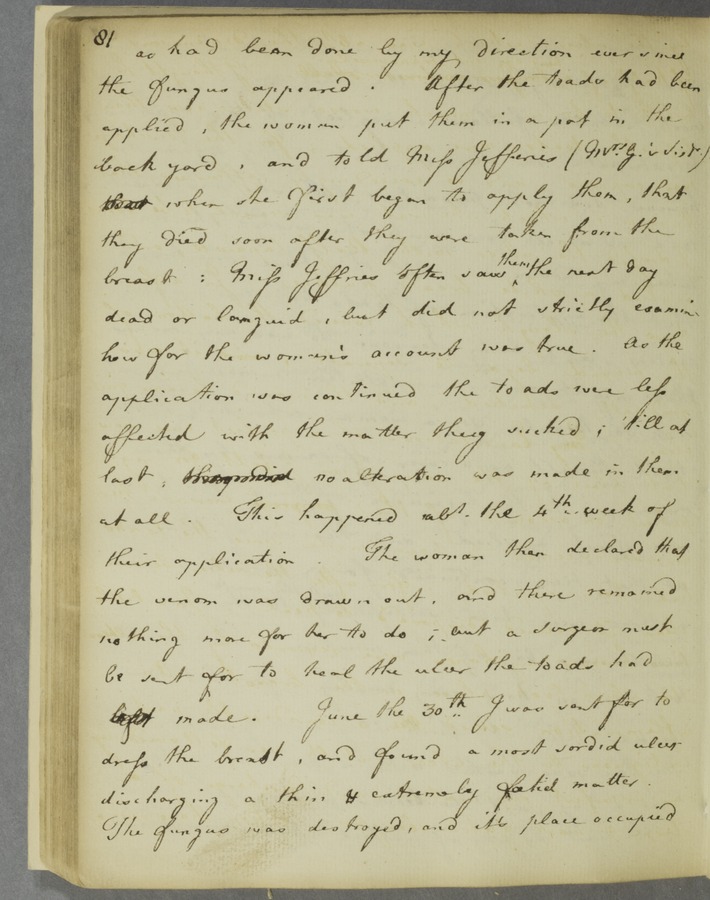 81
as had been done by my direction ever since
the fungus appeared. After the toads had been
applied, the woman put them in a pot in the
back yard, and told Miss Jefferies (Mrs. J.'s Sistr.)
when she first began to apply them, that
they died soon after they were taken from the
breast: Miss Jeffries often saw them the next day
dead or languid, but did not strictly examin
how far the woman's account was true. As the
application was continued the toads were less
affected with the matter they sucked; till at
last, no alteration was made in them
at all. This happened abt. the 4th. week of
their application. The woman then declared that
the venom was drawn out, and there remained
nothing more for her to do; but a surgeon must
be sent for to heal the ulcer the toads had
made. June the 30th. I was sent for to
dress the breast, and found a most sordid ulcer
discharging a thin & extremely fœtid matter.
The fungus was destroyed, and it's place occupied